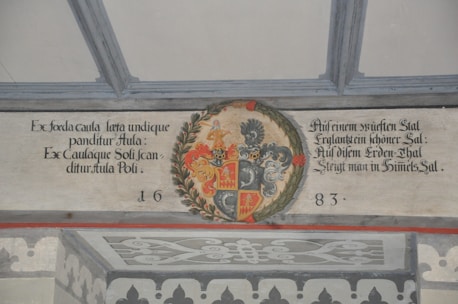 Ex fœda caula lauta undique
panditur Aula:
Ex Caulaque Soli scan-
ditur Aula Poli.
Auß einem wüesten Stal
Erglantz ein schöner Sal:
Auß disem Erden-Thal
Steigt man in Himels Sal.
16 83.